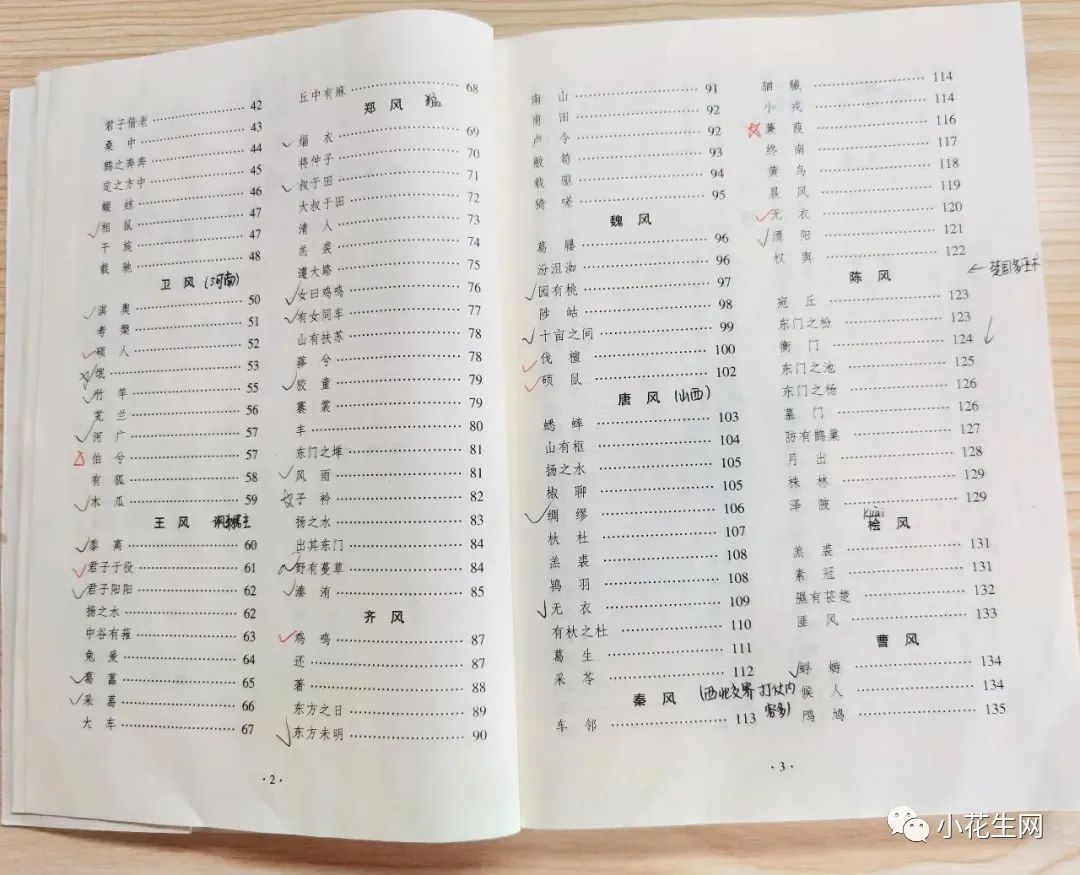 君子偕老 42
桑中 43
鹑之奔奔 44
定之方中 45
蝃蝀 46
相鼠 47
干旄 47
载驰 48
卫风 (河南)
淇奥 50
考槃 51
硕人 52
氓 53
竹竿 55
芄兰 56
河广 57
伯兮 57
有狐 58
木瓜 59
王风
黍离 60
君子于役 61
君子阳阳 62
扬之水 62
中谷有蓷 63
兔爰 64
葛藟 65
采葛 66
大车 67
丘中有麻 68
郑风
缁衣 69
将仲子 70
叔于田 71
大叔于田 72
清人 73
羔裘 74
遵大路 75
女曰鸡鸣 76
有女同车 77
山有扶苏 78
萚兮 78
狡童 79
褰裳 79
丰 80
东门之墠 81
风雨 81
子衿 82
扬之水 83
出其东门 84
野有蔓草 84
溱洧 85
齐风
鸡鸣 87
还 87
著 88
东方之日 89
东方未明 90
·2·
南山 91
甫田 92
卢令 92
敝笱 93
载驱 94
猗嗟 95
魏风
葛屦 96
汾沮洳 96
园有桃 97
陟岵 98
十亩之间 99
伐檀 100
硕鼠 102
唐风 (山西)
蟋蟀 103
山有枢 104
扬之水 105
椒聊 105
绸缪 106
杕杜 107
羔裘 108
鸨羽 108
无衣 109
有杕之杜 110
葛生 111
采苓 112
秦风 (西北交界 打仗内
容多)
车邻 113
驷驖 114
小戎 114
蒹葭 116
终南 117
黄鸟 118
晨风 119
无衣 120
渭阳 121
权舆 122
陈风
宛丘 123
东门之枌 123
衡门 124
东门之池 125
东门之杨 126
墓门 126
防有鹊巢 127
月出 128
株林 129
泽陂 129
kuài
桧风
羔裘 131
素冠 131
隰有苌楚 132
匪风 133
曹风
蜉蝣 134
候人 134
鸤鸠 135
·3·
小花生网